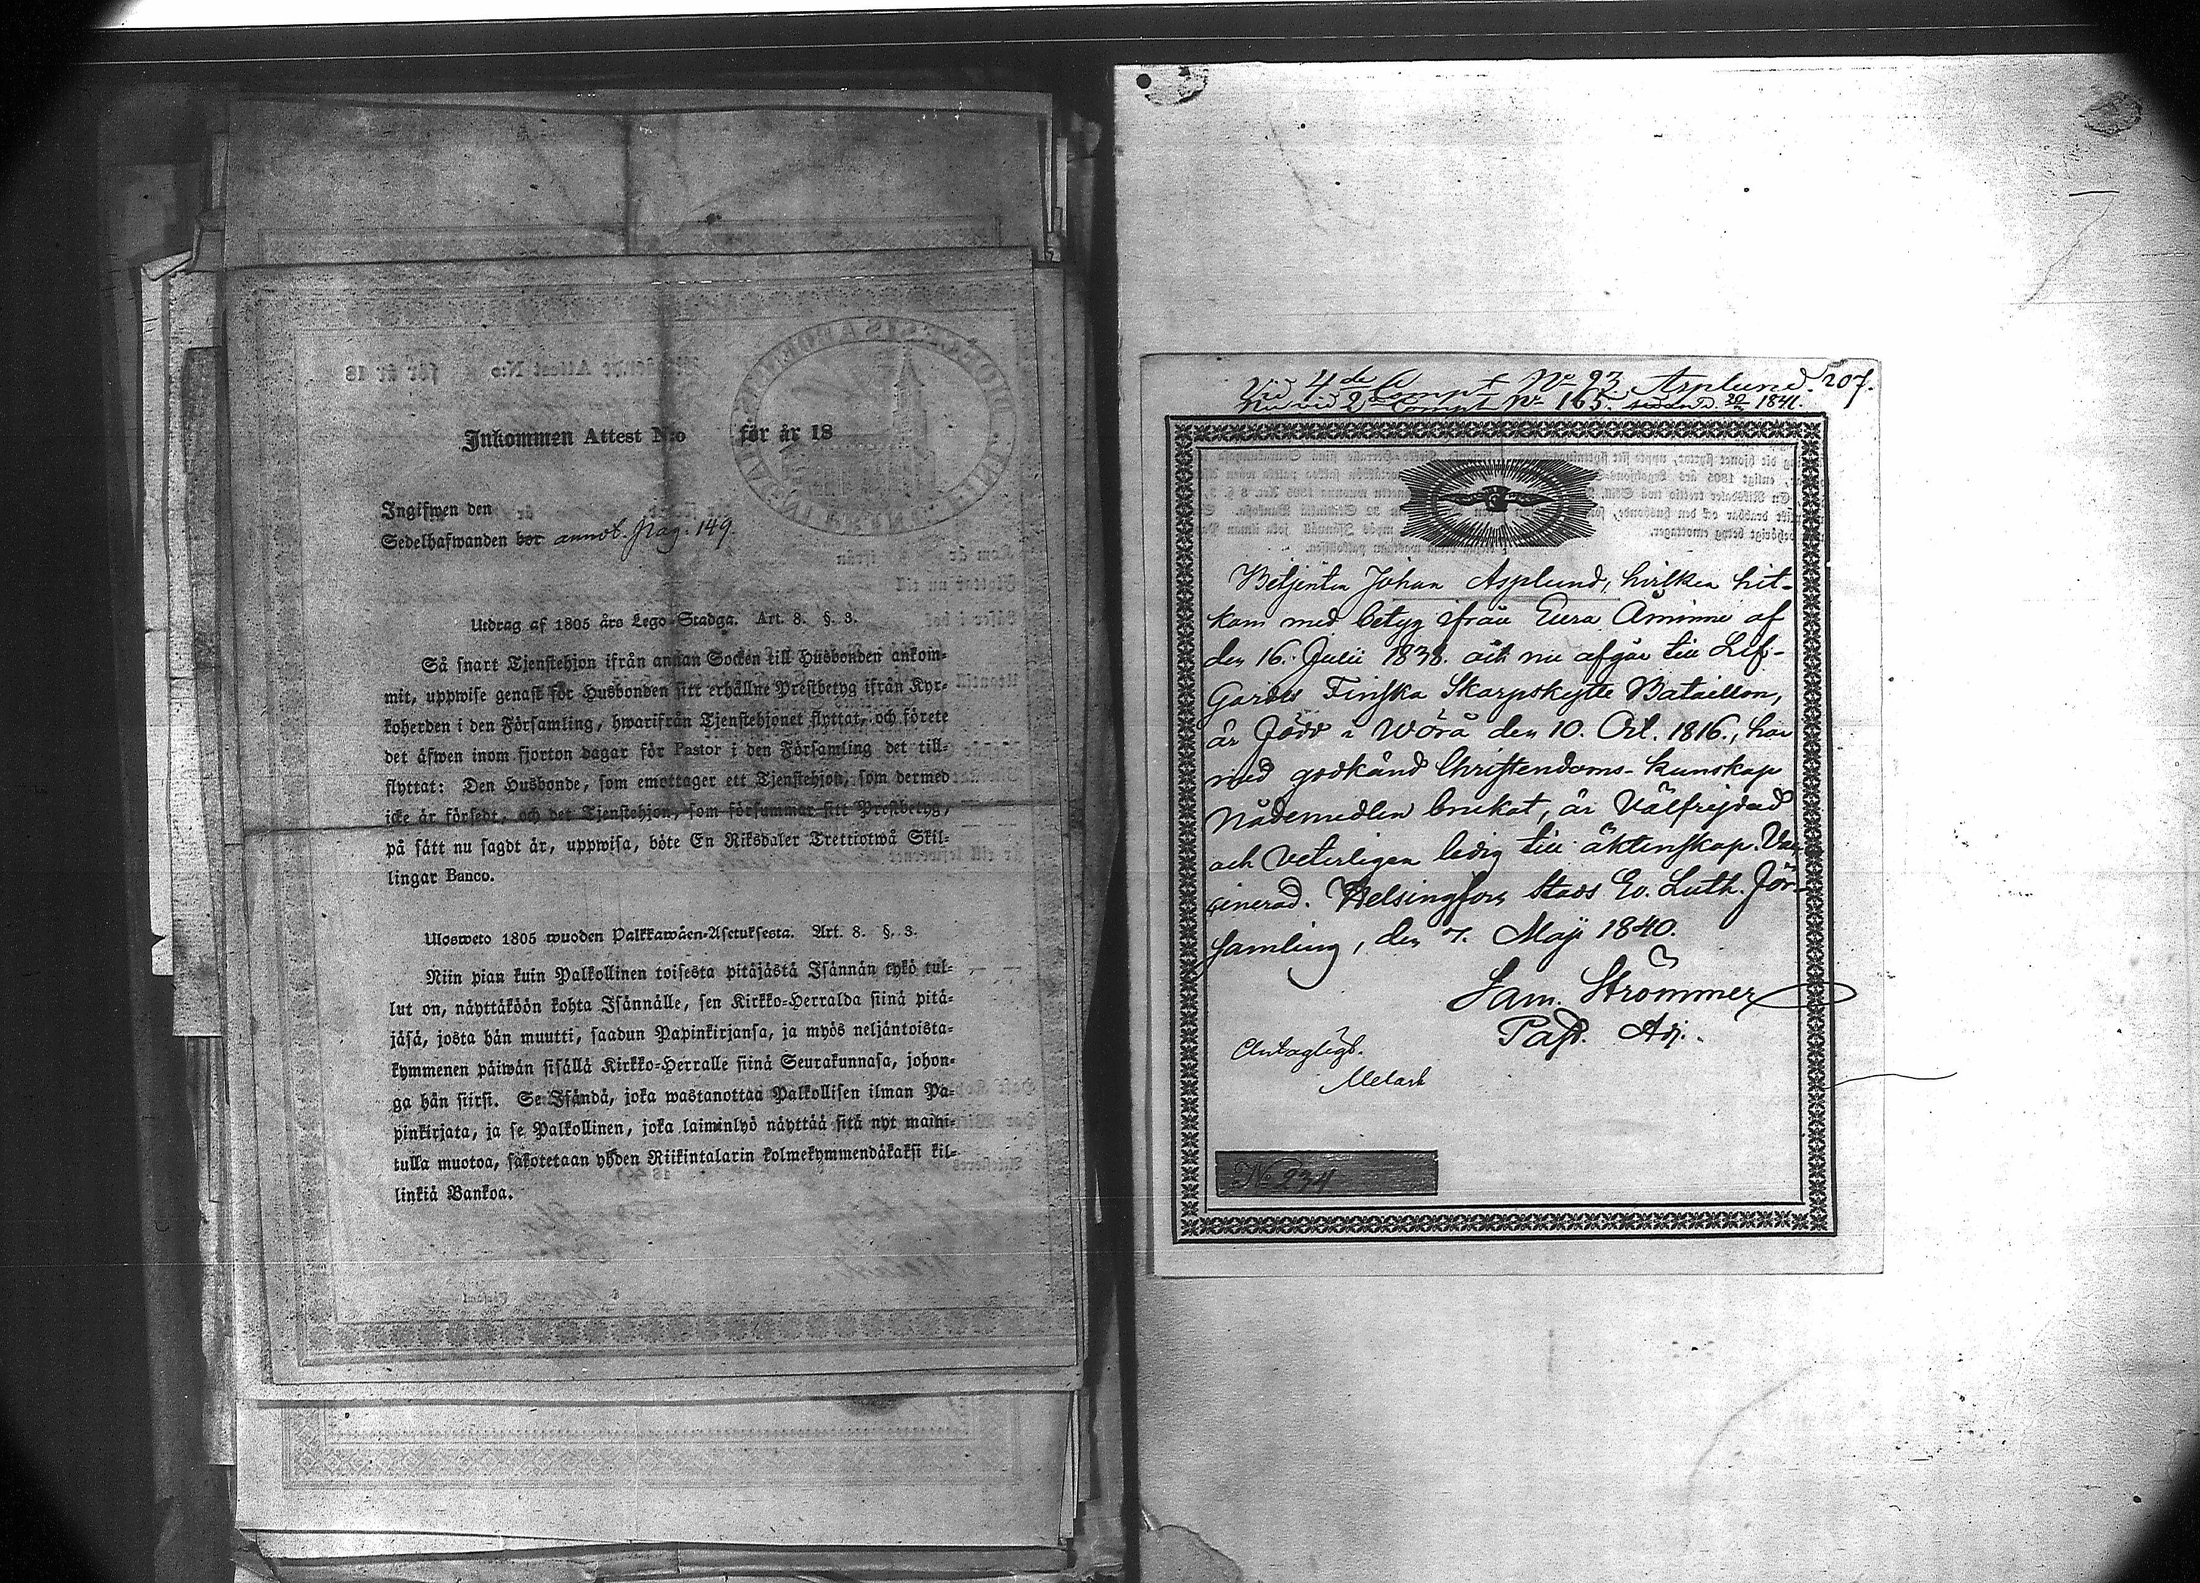 Inkommen Attest N:o för år 18
Ingifwen den
Sedelhafwanden bor annot. pag. 149.
Utdrag af 1805 års Lego-Stadga. Art. 8. §. 3.
Så snart Tjenstehjon ifrån annan Socken till Husbonden ankom-
mit, uppwise genast för Husbonden sitt erhållne Prestbetyg ifrån Kyr-
koherden i den Församling, hwarifrån Tjenstehjonet flyttat, och förete
det äfwen inom fjorton dagar för Pastor i den Församling det till-
flyttat: Den Husbonde, som emottager ett Tjenstehjon, som dermed
icke är försedt, och det Tjenstehjon, som försummar sitt Prestbetyg,
på sätt nu sagdt är, uppwisa, böte En Riksdaler Trettiotwå Skil-
lingar Banco.
Ulosweto 1805 wuoden Palkkawäen-Asetuksesta. Art. 8. §. 3.
Niin pian kuin Palkollinen toisesta pitäjästä Isännän tykö tul-
lut on, näyttäköön kohta Isännälle, sen Kirkko-Herralda siinä pitä-
jäsä, josta hän muutti, saadun Papinkirjansa, ja myös neljäntoista-
kymmenen päiwän sisällä Kirkko-Herralle siinä Seurakunnasa, johon-
ga hän siirsi. Se Isändä, joka wastanottaa Palkollisen ilman Pa-
pinkirjata, ja se Palkollinen, joka laiminlyö näyttää sitä nyt maini-
tulla muotoa, sakotetaan yhden Riikintalarin kolmekymmendäkaksi kil-
linkiä Bankoa.
Vid 4de Compt No 93 Asplund. 207.
Nu vid 2 Compt No 165. sedan d. 1841.
Betjenten Johan Asplund, hvilken hit-
kom med betyg från Eura Åminne af
den 16. Julii 1838. och nu afgår till Lif-
Gardes Finska Skarpskytte Bataillon,
är född i Wörå den 10. Oct. 1816., har
med godkänd Christendoms-kunskap
Nådemedlen brukat, är Välfrejdad
och Veterligen ledig till äktenskap. Vac-
cinerad. Helsingfors Stads Ev. Luth. För-
samling, den 7. Maji 1840.
Sam. Strömmer
Past. Adj.
No 234